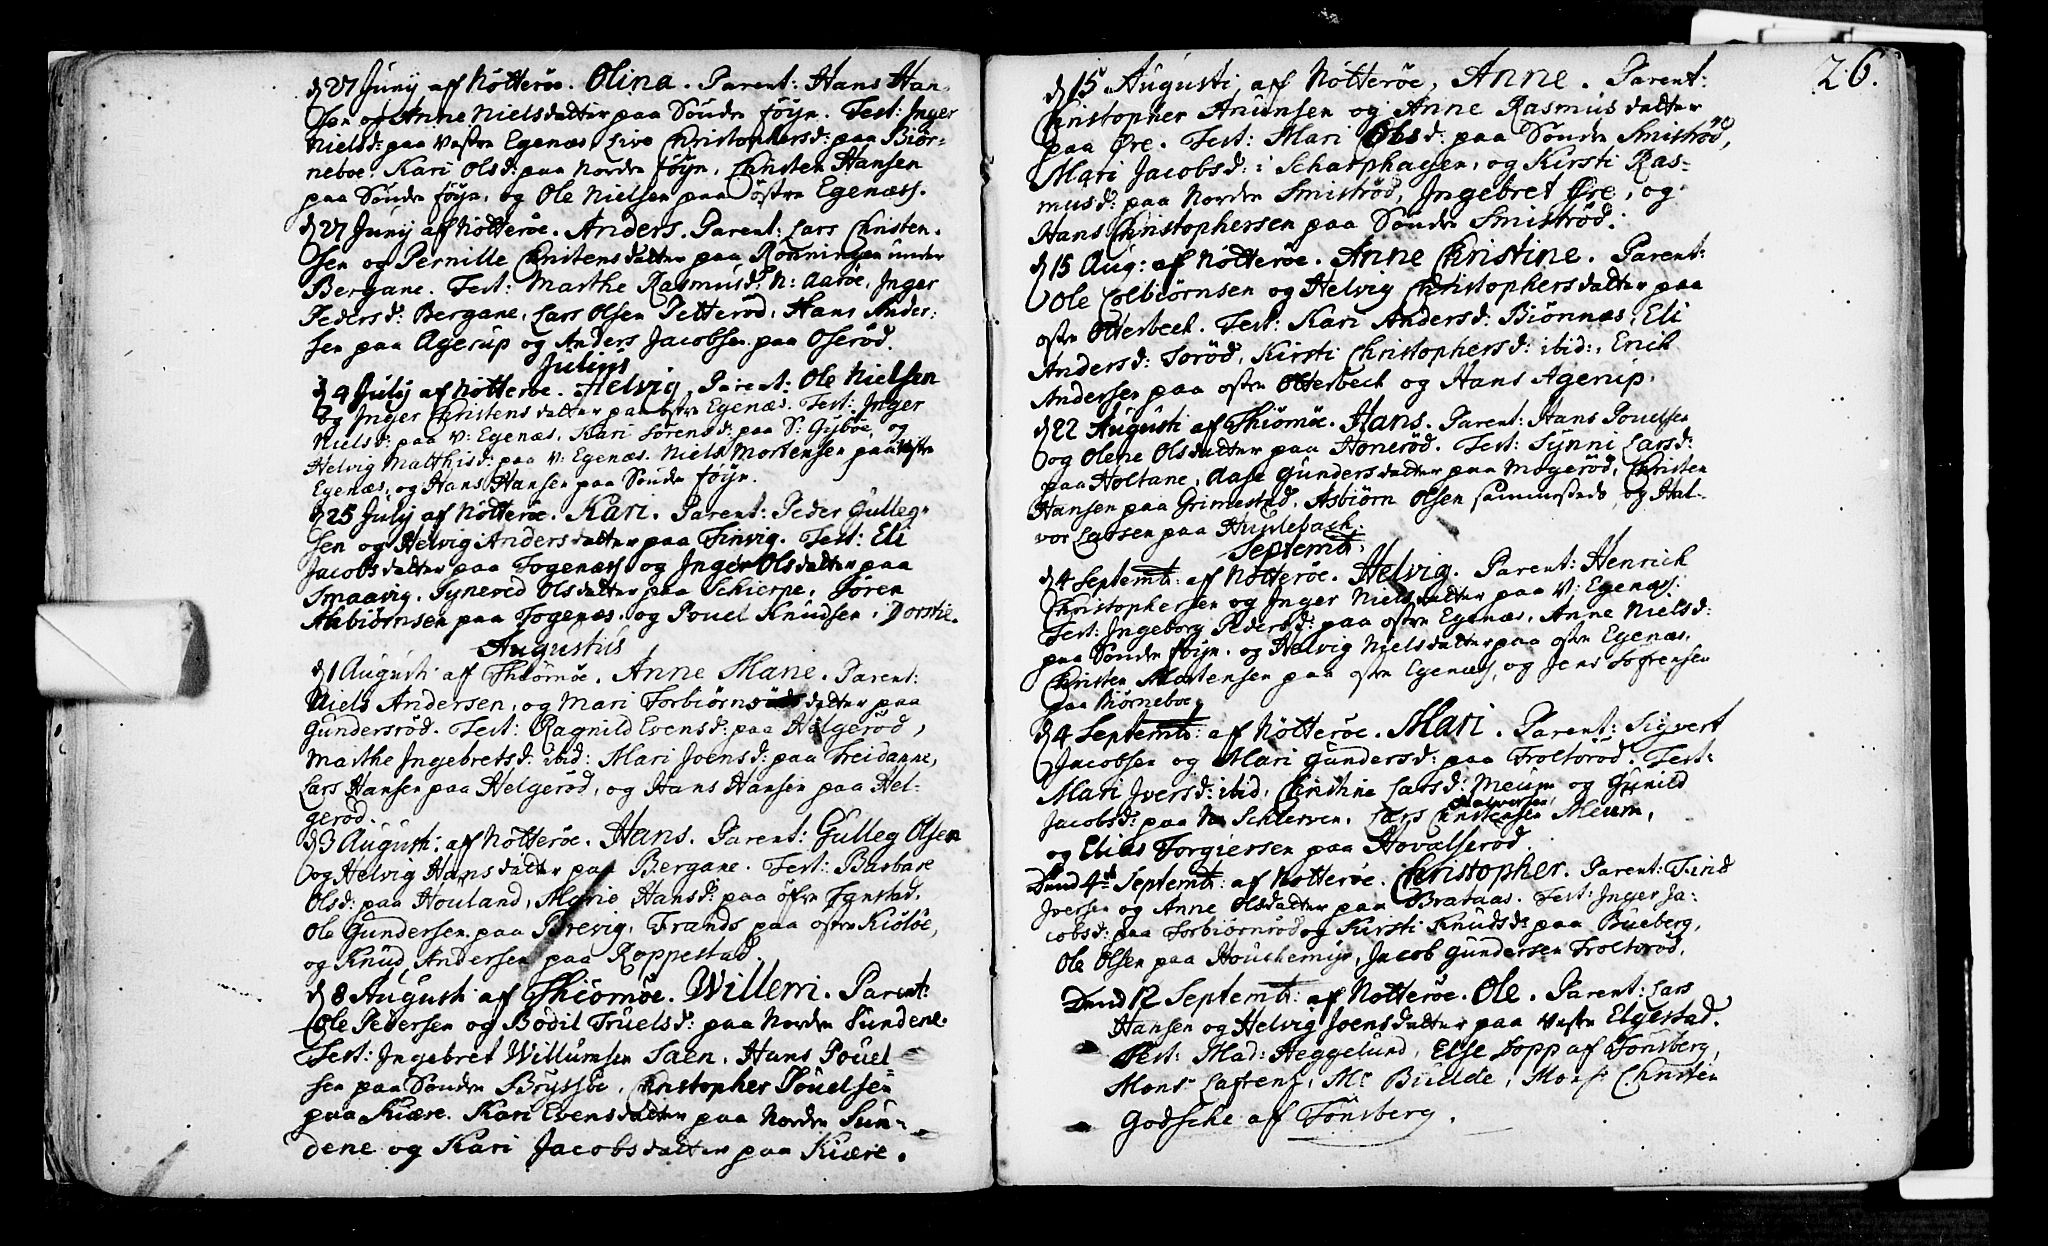 d 27 Junij af Nötteröe. Olina. Parent: Hans Han-
sen og Anne Nielsdatter paa Söndre föyn. Test: Inger
Nielsd: paa Vestre Egenæs, Live Christophersd: paa Biör-
neboe. Kari Olsd: paa Nordre föyn, Christen Hansen
paa Söndre föyn, og Ole Nielsen paa östre Egenæss.
d 27 Junij af Nötteröe. Anders. Parent: Lars Christen-
sen og Pernille Christensdatter paa Rönningen under
Bergane. Test: Marthe Rasmusd: N: Aaröe, Inger
Pedersd: Bergane, Lars Olsen Jetteröd, Hans Ander-
sen paa Agerup og Anders Jacobsen paa Oseröd.
Julius
d 4 Julij af Nötteröe. Helvig. Parent: Ole Nielsen
og Inger Christensdatter paa östre Egenæs. Test: Inger
Nielsd: paa V: Egenæs, Kari Sörensd: paa S: Gyböe, og
Helvig Matthisd: paa V: Egenæs. Niels Mortensen paa Vestre
Egenæs, og Hans Hansen paa Söndre föyn.
d 25 Julij af Nötteröe. Kari. Parent: Peder Gulleg-
sen og Helvig Andersdatter paa Finvig. Test: Eli
Jacobsdatter paa Togenæss og Inger Olsdatter paa
Smaavig. Synered Olsdatter paa Schierpe, Sören
Abbiörnsen paa Togenæs, og Pouel Knudsen, Dorstie.
Augustus
d 1 Augusti af Thiömöe. Anne Marie. Parent:
Niels Andersen, og Mari Torbiörnsdatter paa
Gundersröd. Test: Ragnild Evensd: paa Helgeröd,
Marthe Ingebretsd: ibid: Mari Joensd: paa Treidanne,
Lars Hansen paa Helgeröd, og Hans Hansen paa Hel-
geröd.
d 3 Augusti: af Nötteröe. Hans. Parent: Gulleg Olsen
og Helvig Hansdatter paa Bergane. Test: Barbare
Olsd: paa Houland, Marie Hansd: paa öfre Fanstad.
Ole Gundersen paa Brevig, Frands paa östre Kiölöe,
og Knud Andersen paa Roppestad.
d 8 Augusti af Thiömöe. Willem. Parent:
Ole Pedersen og Bodil Truelsd: paa Nordre Sundene.
Test: Ingebret Willumsen Saen. Hans Pouel-
sen paa Söndre Bryssöe, Christopher Pouelsen
paa Kiære. Kari Evensdatter paa Nordre Sun-
dene og Kari Jacobsdatter paa Kiære.
26.
d 15 Augusti, af Nötteröe, Anne. Parent:
Christopher Anunsen og Anne Rasmusdatter
paa Öre. Test: Mari Olsd: paa Söndre Smiströd,
Mari Jacobsd: i Scharphagen, og Kirsti Ras-
musd: paa Nordre Smiströd, Ingebret Öre, og
Hans Christophersen paa Söndre Smiströd.
d 15 Aug: af Nötteröe. Anne Christine. Parent:
Ole Colbiörnsen og Helvig Christophersdatter paa
östre Otterbech. Test: Kari Andersd: Biönnæs, Eli
Andersd: Soröd, Kirsti Christophersd: ibid:, Erich
Andersen paa östre Otterbech og Hans Agerup.
d 22 Augusti af Thiömöe. Hans. Parent: Hans Pouelsen
og Olene Olsdatter paa Honeröd. Test: Synni Larsd:
paa Holtane, Aase Gundersdatter paa Mögeröd, Christen
Hansen paa Grimestad, Asbiörn Olsen sammesteds, og Hal-
vor Larsen paa Huulebach.
Septemb:
d 4 Septemb: af Nötteröe. Helvig. Parent: Henrich
Christophersen og Inger Nielsdatter paa V: Egenæs.
Test: Ingeborg Pedersd: paa östre Egenæs, Anne Nielsd:
paa Söndre föyn, og Helvig Nielsdatter paa östre Egenæs.
Christen Mortensen paa östre Egenæs, og Jens Sörensen
paa Biörneboe.
d 4 Septemb: af Nötteröe. Mari. Parent: Sigvert
Jacobsen og Mari Gundersd: paa Froltoröd. Test:
Mari Iversd: ibid, Christine Larsd: Meum og Gunild
Jacobsd: paa Schlerven. Lars Christensen Halversen Meum,
og Elias Torgiersen paa Hovalseröd.
Dend 4de Septemb: af Nötteröe. Christopher. Parent:
Iversen og Anne Olsdatter paa Brataas. Test: Inger Ja-
cobsd: paa Torbiörnröd og Kirsti Knudsd: paa Bueberg,
Ole Olsen paa Houchemyr, Jacob Gundersen Froltoröd.
Dend 12 Septemb: af Nötteröe. Ole. Parent: Lars
Hansen og Helvig Joensdatter paa Vestre Elgestad.
Test: Mad: Heggelund, Else Lopp af Tönsberg,
Monsr Lafrens, Mr Budde, Monsr Christen
Godsche af Tönsberg.